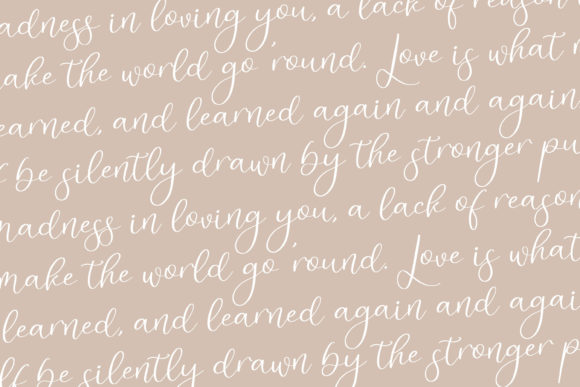 adness in loving you, a lack of reason
make the world go 'round. Love is what
earned, and learned again and again
f be silently drawn by the stronger pu
madness in loving you, a lack of reason
make the world go 'round. Love is what
learned, and learned again and agai
lf be silently drawn by the stronger p